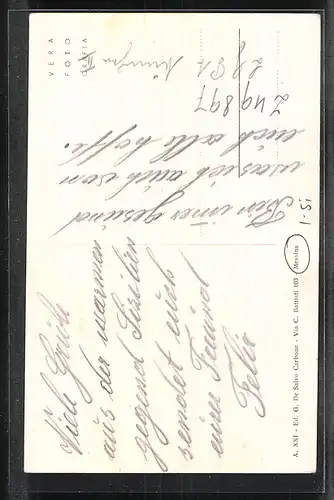 VERA
FOTO
GRAFIA
Viele Grüße
aus der warmen
gegend Sizilien
sendet euch
euer Freund
Felix
Bin imer gesund
was ich auch von
euch alle hoffe.
ZU9897
I-Si
A. XXI - Ed. G. De Salvo Carbone - Via C. Battisti 103 Messina